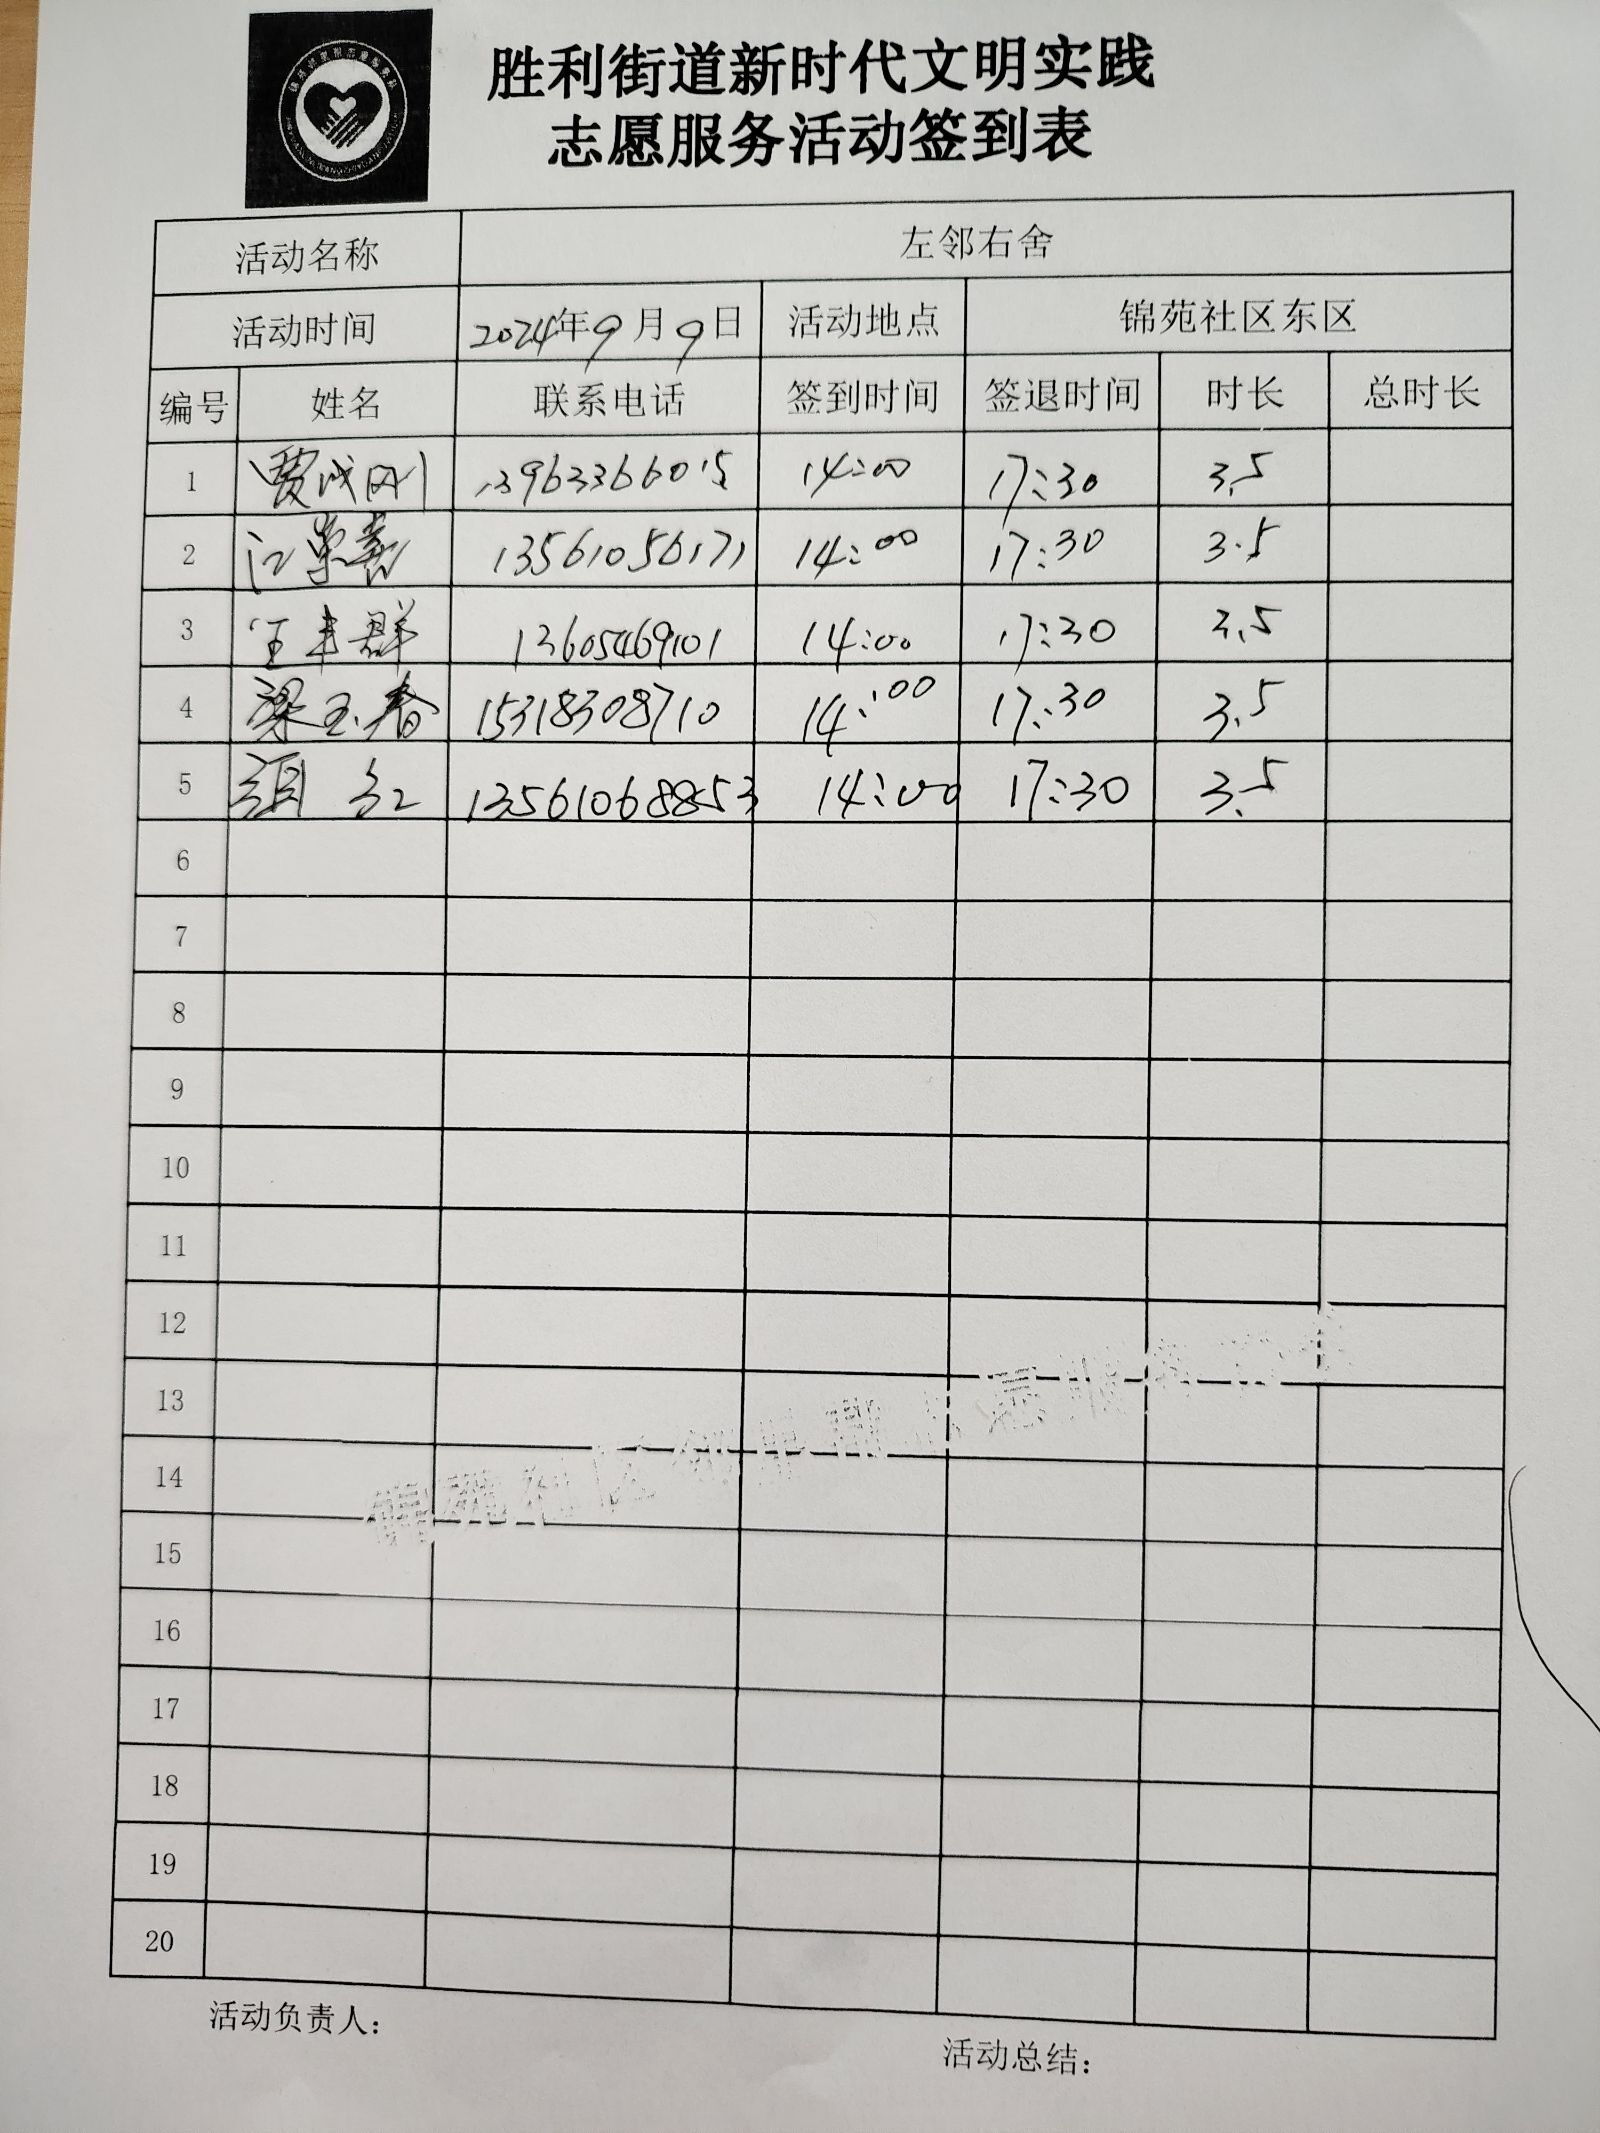 胜利街道新时代文明实践
志愿服务活动签到表
活动名称 左邻右舍
活动时间 2024年9月9日 活动地点 锦苑社区东区
编号 姓名 联系电话 签到时间 签退时间 时长 总时长
1 贾成刚 13963366015 14:00 17:30 3.5
2 江荣喜 13561056171 14:00 17:30 3.5
3 王丰群 13605469101 14:00 17:30 3.5
4 梁玉春 15318308710 14:00 17:30 3.5
5 红 13561068853 14:00 17:30 3.5
6
7
8
9
10
11
12
13
14
15
16
17
18
19
20
活动负责人:
活动总结: